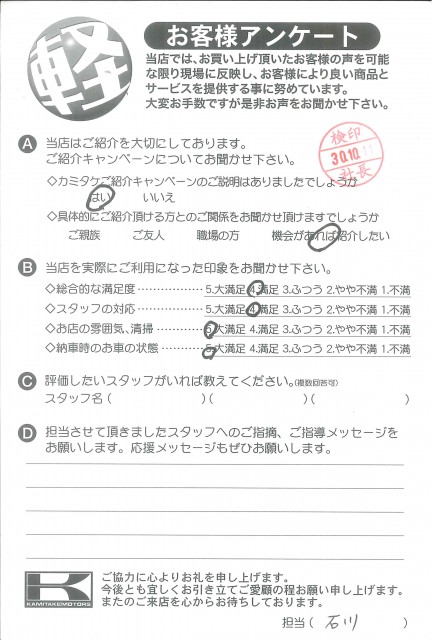 軽
お客様アンケート
当店では、お買い上げ頂いたお客様の声を可能
な限り現場に反映し、お客様により良い商品と
サービスを提供する事に努めています。
大変お手数ですが是非お声をお聞かせ下さい。
A 当店はご紹介を大切にしております。
ご紹介キャンペーンについてお聞かせ下さい。
検印
30.10.11
社長
◇カミタケご紹介キャンペーンのご説明はありましたでしょうか
はい いいえ
◇具体的にご紹介頂ける方とのご関係をお聞かせ頂けますでしょうか
ご親族 ご友人 職場の方 機会があれば紹介したい
B 当店を実際にご利用になった印象をお聞かせ下さい。
◇総合的な満足度……………5.大満足 4.満足 3.ふつう 2.やや不満 1.不満
◇スタッフの対応……………5.大満足 4.満足 3.ふつう 2.やや不満 1.不満
◇お店の雰囲気、清掃…………5.大満足 4.満足 3.ふつう 2.やや不満 1.不満
◇納車時のお車の状態…………5.大満足 4.満足 3.ふつう 2.やや不満 1.不満
C 評価したいスタッフがいれば教えてください。(複数回答可)
スタッフ名( )( )( )
D 担当させて頂きましたスタッフへのご指摘、ご指導メッセージを
お願いします。応援メッセージもぜひお願いします。
K
KAMITAKEMOTORS
ご協力に心よりお礼を申し上げます。
今後とも宜しくお引き立てご愛顧の程お願い申し上げます。
またのご来店を心からお待ちしております。
担当( 石川 )